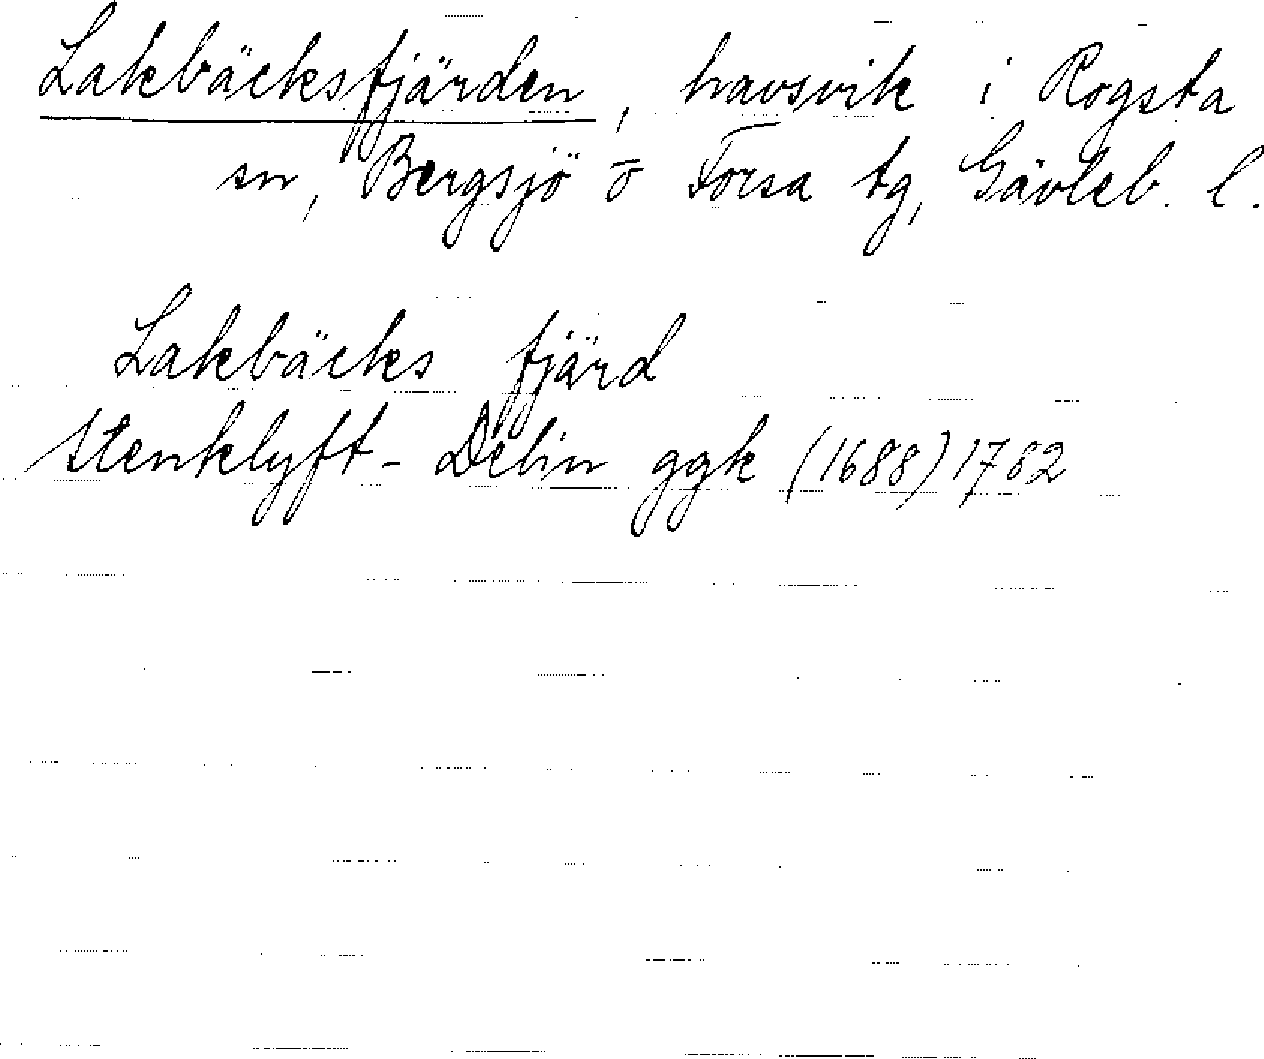 Lakbäcksfjärden, havsvik i Rogsta
sn, Bergsjö o Forsa tg, Gävleb. l.
Lakbäcks fjärd
Stenklyft-Delin ggk (1688) 1762